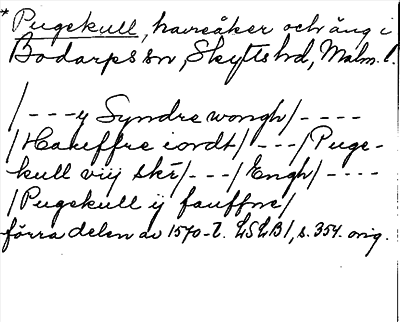 * Pugekull, havreåker och äng i
Bodarps sn, Skytts hd, Malm. l.
/---y Syndre wongh/----
/Haueffre iordt/---/Puge-
kull viij skr/---/Engh/----
/Pugekull ij fauffne/
förra delen av 1570-t. LSLB 1, s. 354. orig.